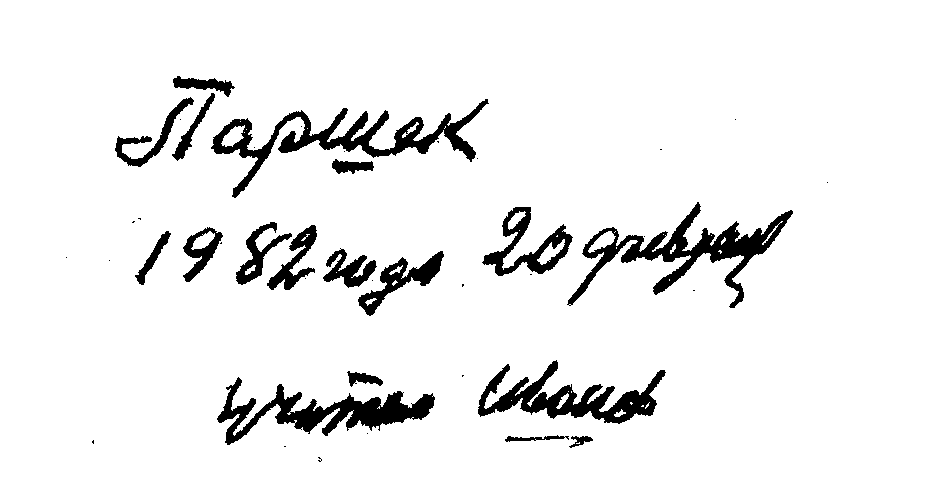 Паршек
1982 года 20 февраля
учитель Иванов